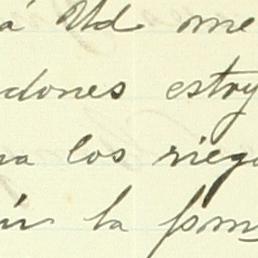 á Ud me
dones estoy
na los riega
ún la form